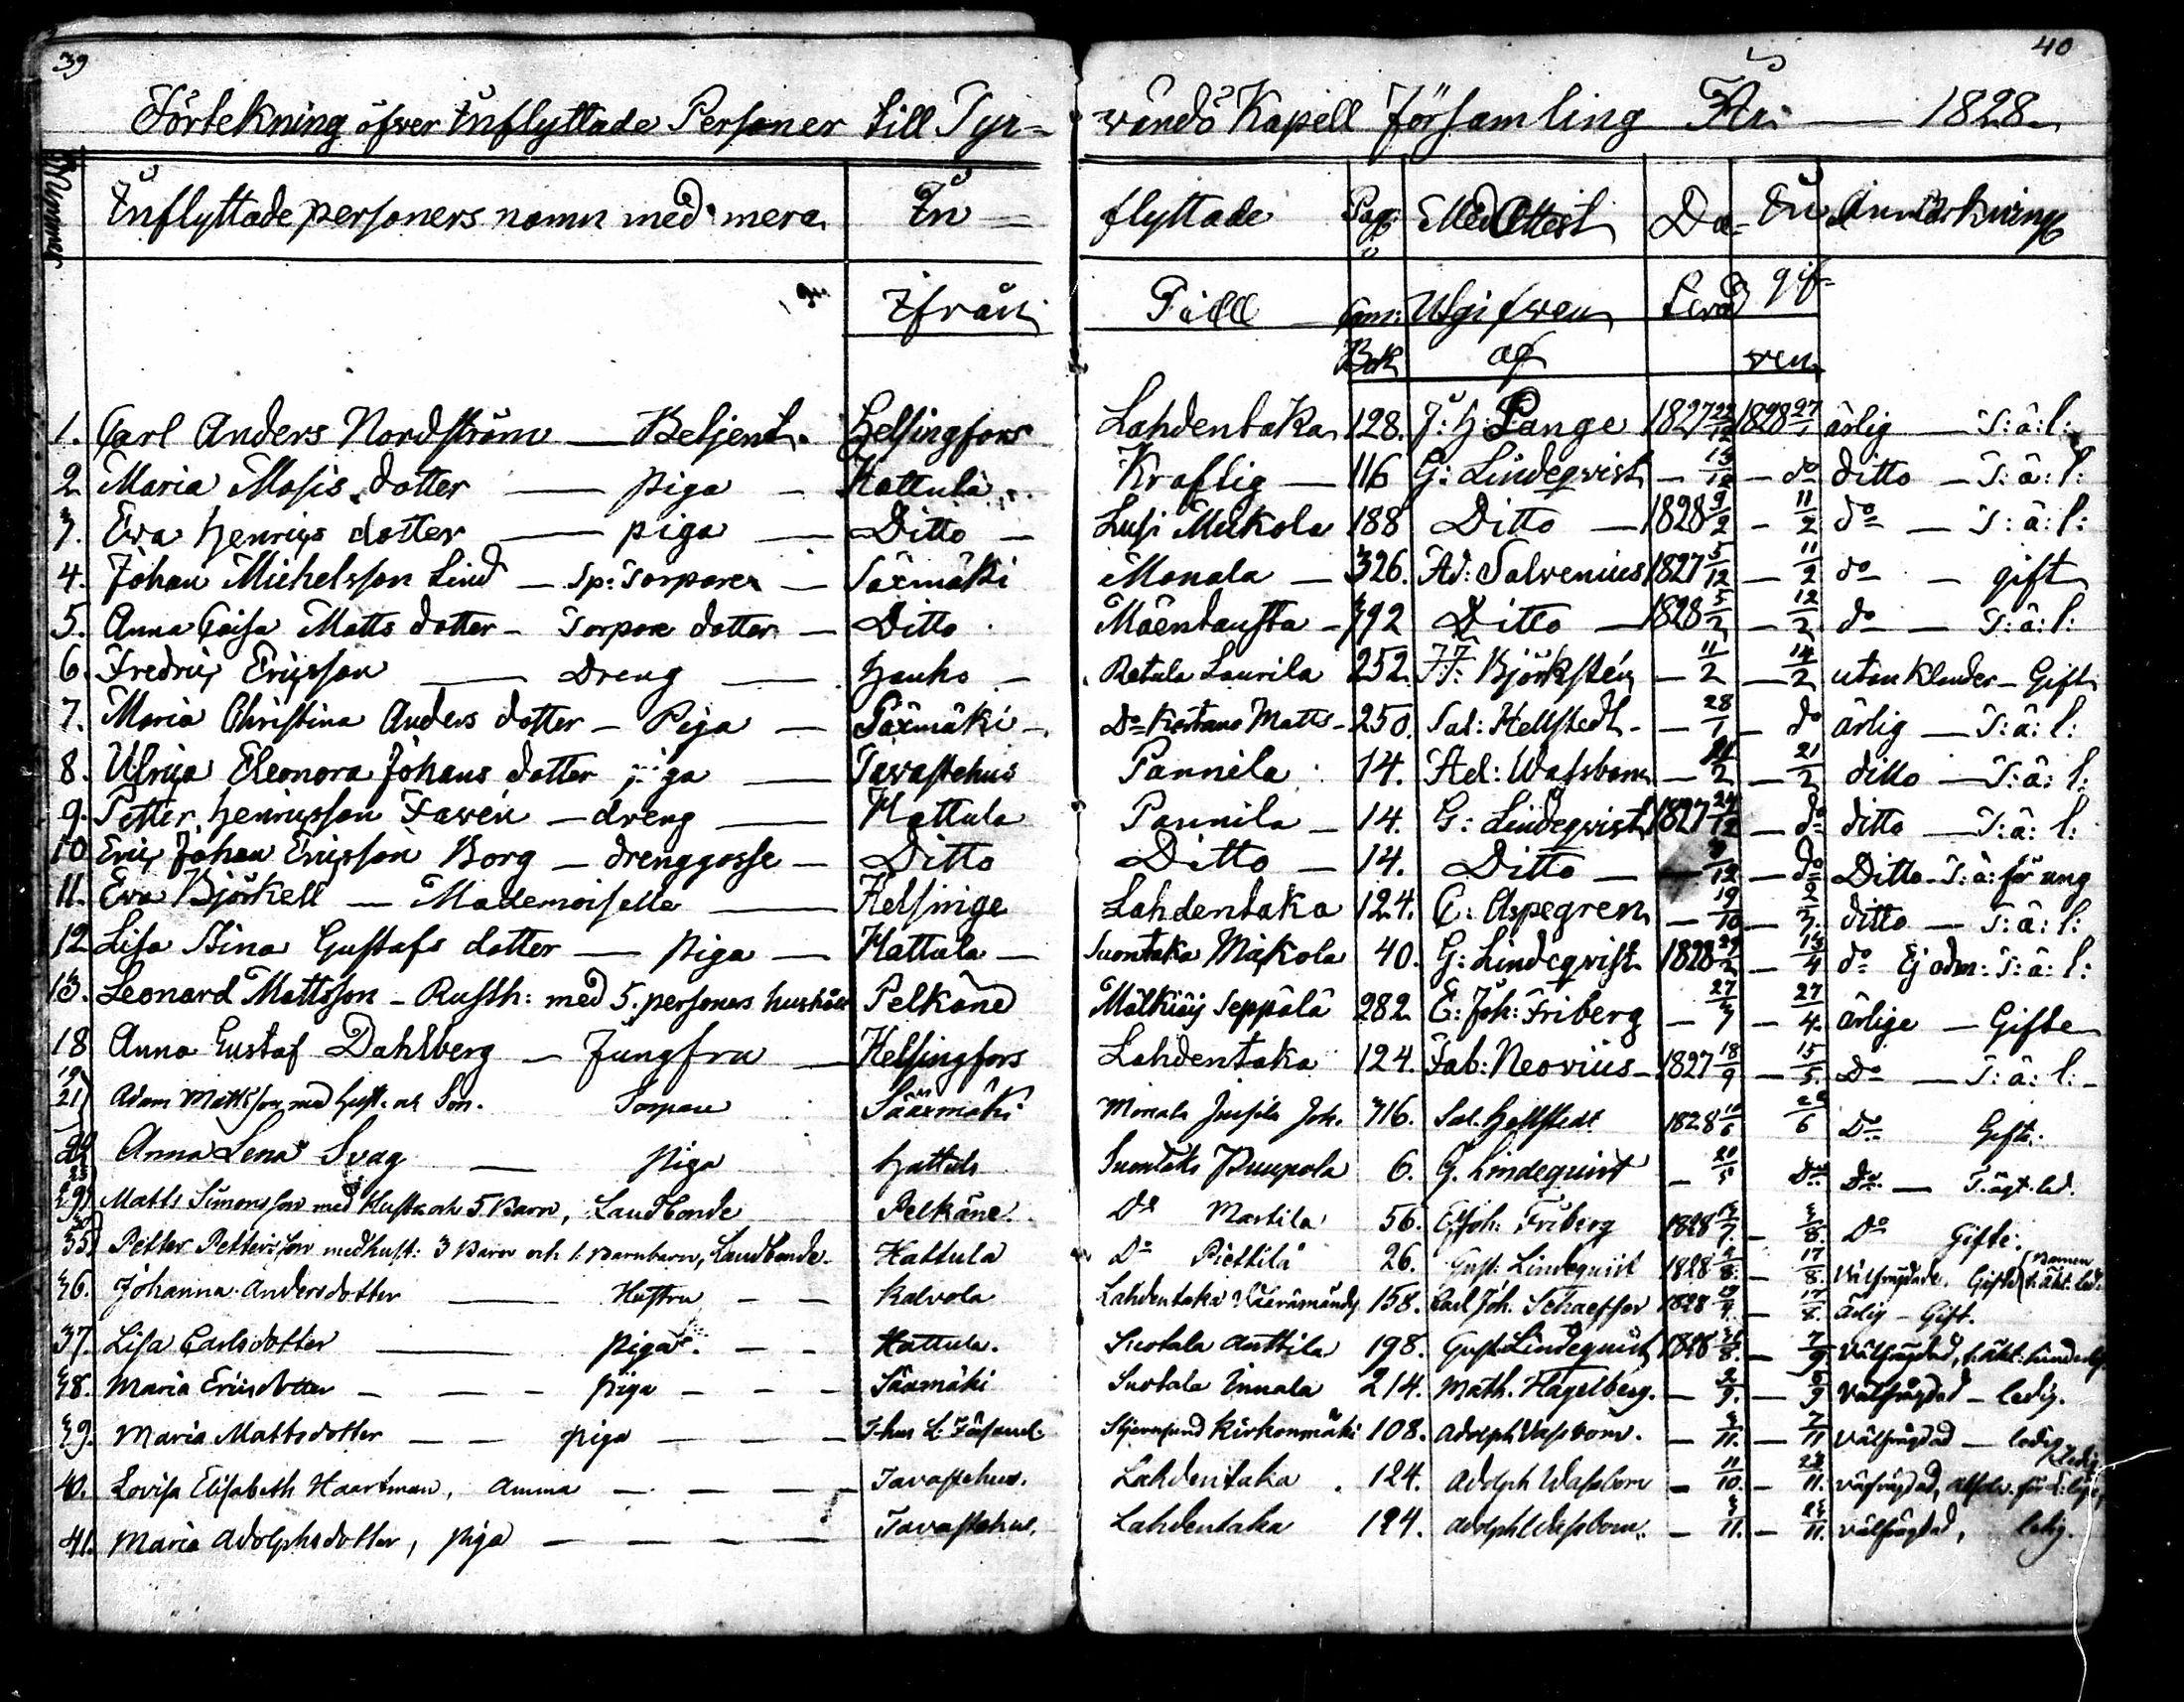 39
40
Förtekning öfwer Inflyttade Personer till Tyr= wändö Kapell Församling År 1828
Nummer Inflyttade personers namn med mera In= flyttade Pag: Med Attest Da= In Anmärkning
Ifrån Till Com: Utgifwen terad gif=
Bok af ven
1. Carl Anders Nordström — Betjent. Helsingfors Lahdentaka 128. J: H: Lange 1827 22/12 1828 27/1 ärlig — T: ä: l:
2. Maria Mosis dotter — piga — Hattula Kraftig — 116 G: Lindeqvist — 13/12 — do ditto — T: ä: l:
3. Ewa Henrics dotter — piga — Ditto — Lusi Mickola 188 Ditto — 1828 9/2 — 11/2 do — T: ä: l:
4. Johan Michelsson Lind — Sp: Torpare — Säxmäki Monala — 326. Ad: Salvenius 1827 5/12 — 11/2 do — gift
5. Anna Caisa Matts dotter — Torpare dotter — Ditto Mäentausta — 392 Ditto — 1828 5/2 — 12/2 do — T: ä: l:
6. Fredric Ericsson — Dreng — Hauho — Retula Laurila 252. F: F: Björkstén — 11/2 — 14/2 utan klander — Gift
7. Maria Christina Anders dotter — Piga — Säxmäki — Do Matts — 250. Sal: Hellstedt — 28/1 — do ärlig — T: ä: l:
8. Ulrica Eleonora Johans dotter piga — Tavastehus Pannila 14. Ad: Wassbom — /2 — 21/2 ditto — T: ä: l:
9. Petter Henricsson Fawén — dreng — Hattula Pannila — 14. G: Lindeqvist 1827 24/12 — do ditto — T: ä: l:
10 Eric Johan Ericsson Borg — drenggosse — Ditto Ditto — 14. Ditto — /12 — do Ditto — T: ä: för ung
11. Ewa Björkell — Mademoiselle — Helsinge Lahdentaka 124. C: Aspegren — 19/10 — 2/3. ditto — T: ä: l:
12 Lisa Stina Gustafs dotter — piga — Hattula — Suontaka Mickola 40. G: Lindeqvist 1828 29/2 — 13/4 do Ej adm: T: ä: l:
13. Leonard Mattsson — Rusth: med 5. personers hushåll Pelkäne Mälkiäis Seppälä 282 E: Joh: Friberg — 27/3 — 27/4. ärlige — Gifte
18 Anna Gustaf Dahlberg — Jungfru — Helsingfors Lahdentaka 124. Fab: Neovius — 1827 18/9 — 15/5. Do — T: ä: l: —
19 21 Adam Mattsson med hust. och Son. Torpare Sääxmäki Monala Jussila Joh. 316. Sal. Hellstedt 1828 /6 Do Gifte.
22 Anna Lena Svag — piga Hattula Suontaka Puupola 6. G. Lindequist — 20/5 Do Do — T. ägt. led.
23 29 Matts Simonsson med Hustru och 5 Barn, Landbonde Pelkäne. Do Martila 56. E. Joh: Friberg 1828 /7. — 3/8. Do Gifte.
30 35 Petter Pettersson med hust: 3 Barn och 1. Barnbarn, Landbonde. Hattula Do Piettilä 26. Gust. Lindequist 1828 /8. — 17/8. Välfrägdade. Gifte, Barnen t. äkt. led.
36. Johanna Andersdotter — Hustru — — Kalvola Lahdentaka 158. Carl Joh. Schaeffer 1828 — 17/8. ärlig — Gift.
37. Lisa Carlsdotter — piga. — — Hattula. Suotala Anttila 198. Gust. Lindequist 1828 /8. — 7/9. Välfrägdad, t. äkt.
38. Maria Ericsdotter — — — piga — — — Sääxmäki Suotala Innala 214. Math. Hagelberg. — /9. — /9 Välfrägdad — ledig.
39. Maria Mattsdotter — — piga — — — T-hus L. Församl. Stjernsund Kirkonmäki 108. Adolph Wassbom. — /11. — 7/11 Välfrägdad — ledig
40. Lovisa Elisabeth Haartman, Amma — — — — Tavastehus. Lahdentaka 124. Adolph Wassbom — 11/10. — /11. Välfrägdad, ledig
41. Maria Adolphsdotter, piga — — — — Tavastehus. Lahdentaka 124. Adolph Wassbom. — /11. — /11. Välfrägdad, ledig.